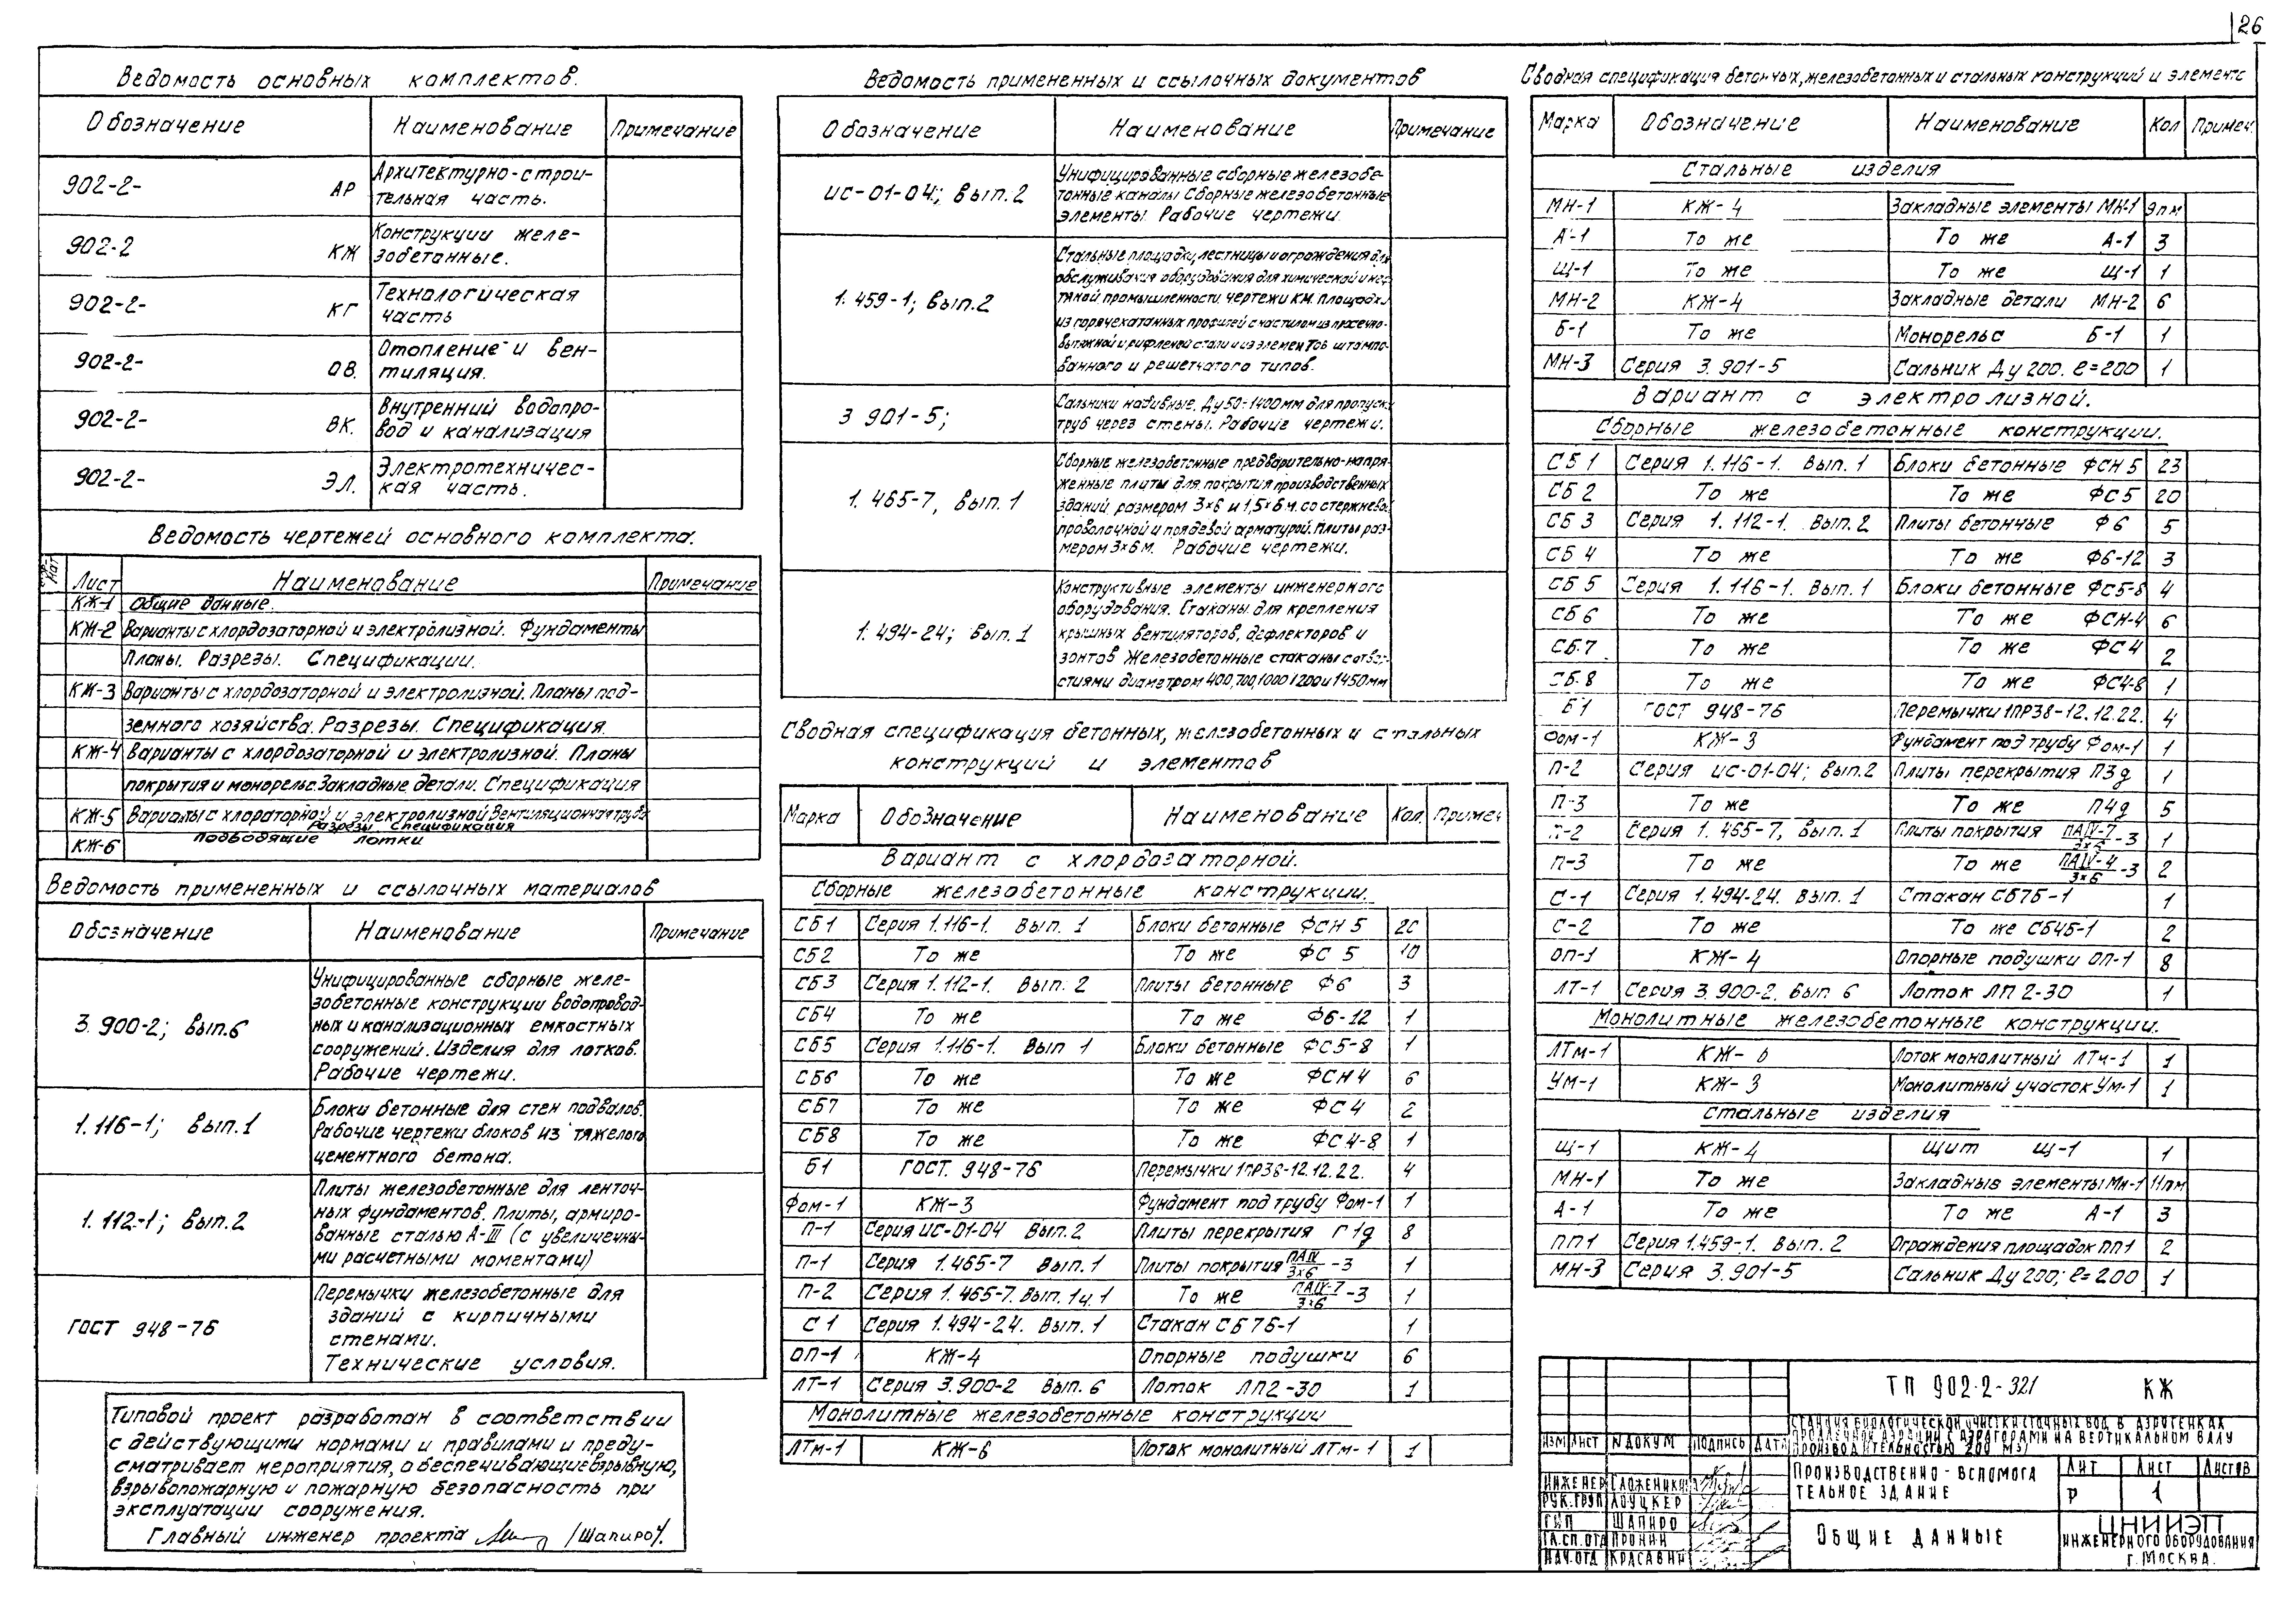 26
Ведомость основных комплектов.
Обозначение Наименование Примечание
902-2- АР Архитектурно-строи-
тельная часть.
902-2 КЖ Конструкции желе-
зобетанные.
902-2- КГ Технологическая
часть
902-2- ОВ. Отопление и вен-
тиляция.
902-2- ВК. Внутренний водопро-
вод и канализация
902-2- ЭЛ. Электротехничес-
кая часть.
Ведомость чертежей основного комплекта.
Лист Наименование Примечание
КЖ-1 Общие данные.
КЖ-2 Варианты с хлордозаторной и электролизной. Фундаменты
Планы. Разрезы. Спецификации.
КЖ-3 Варианты с хлордозаторной и электролизной. Планы под-
земного хозяйства. Разрезы. Спецификация.
КЖ-4 Варианты с хлордозаторной и электролизной. Планы
покрытия и монорельс. Закладные детали. Спецификация
КЖ-5 Варианты с хлораторной и электролизной Вентиляционная труба
Разрезы. Спецификация
КЖ-6 Подводящие лотки
Ведомость примененных и ссылочных материалов
Обозначение Наименование Примечание
3.900-2; вып.6 Унифицированные сборные желе-
зобетонные конструкции водопровод-
ных и канализационных емкостных
сооружений. Изделия для лотков.
Рабочие чертежи.
1.116-1; вып.1 Блоки бетонные для стен подвалов.
Рабочие чертежи блоков из тяжелого
цементного бетона.
1.112-1; вып.2 Плиты железобетонные для ленточ-
ных фундаментов. Плиты, армиро-
ванные сталью А-III (с увеличенны-
ми расчетными моментами)
ГОСТ 948-76 Перемычки железобетонные для
зданий с кирпичными
стенами.
Технические условия.
Типовой проект разработан в соответствии
с действующими нормами и правилами и преду-
сматривает мероприятия, обеспечивающие взрывную,
взрывопожарную и пожарную безопасность при
эксплуатации сооружения.
Главный инженер проекта /Шапиро/.
Ведомость примененных и ссылочных документов
Обозначение Наименование Примечание
ИС-01-04; вып.2 Унифицированные сборные железобе-
тонные каналы Сборные железобетонные
элементы Рабочие чертежи.
1.459-1; вып.2 Стальные площадки, лестницы и ограждения для
обслуживания оборудования для химической и неф-
тяной промышленности. чертежи КМ. площадки
из горячекатанных профилей с настилом из просечно-
вытяжной и рифленой стали и из элементов штампо-
ванного и решетчатого типов.
3 901-5; Сальники набивные. Ду50÷1400мм для пропуск
труб через стены. Рабочие чертежи.
1.465-7, вып.1 Сборные железобетонные предварительно-напря-
женные плиты для покрытия производственных
зданий размером 3×6 и 1,5×6м. со стержнево
проволочной и прядевой арматурой. Плиты раз-
мером 3×6м. Рабочие чертежи.
1.494-24; вып.1 Конструктивные элементы инженерного
оборудования. Стаканы для крепления
крышных вентиляторов, дефлекторов и
зонтов Железобетонные стаканы с отвер-
стиями диаметром 400,700,1000 1200 и 1450мм
Сводная спецификация бетонных, железобетонных и стальных
конструкций и элементов
Марка Обозначение Наименование Кол. Примеч
Вариант с хлордозаторной.
Сборные железобетонные конструкции.
СБ1 Серия 1.116-1. Вып. 1 Блоки бетонные ФСН 5 20
СБ2 То же То же ФС 5 10
СБ3 Серия 1.112-1. Вып. 2 Плиты бетонные Ф6 3
СБ4 То же То же Ф6-12 1
СБ5 Серия 1.116-1. Вып 1 Блоки бетонные ФС5-8 1
СБ6 То же То же ФСН4 6
СБ7 То же То же ФС4 2
СБ8 То же То же ФС4-8 1
Б1 ГОСТ. 948-76 Перемычки 1ПР38-12.12.22. 4
Фом-1 КЖ-3 Фундамент под трубу Фом-1 1
П-1 Серия ИС-01-04 Вып.2 Плиты перекрытия П1д 8
П-1 Серия 1.465-7 Вып.1 Плиты покрытия ПАIV/3×6-3 1
П-2 Серия 1.465-7. Вып.1ч.1 То же ПАIV-7/3×6-3 1
С1 Серия 1.494-24. Вып.1 Стакан СБ7Б-1 1
ОП-1 КЖ-4 Опорные подушки 6
ЛТ-1 Серия 3.900-2 Вып.6 Лоток ЛП2-30 1
Монолитные железобетонные конструкции
ЛТм-1 КЖ-6 Лоток монолитный ЛТм-1 1
Сводная спецификация бетонных, железобетонных и стальных конструкций и элементо
Марка Обозначение Наименование Кол Примеч.
Стальные изделия
МН-1 КЖ-4 Закладные элементы МН-1 9пм
А-1 То же То же А-1 3
Щ-1 То же То же Щ-1 1
МН-2 КЖ-4 Закладные детали МН-2 6
Б-1 То же Монорельс Б-1 1
МН-3 Серия 3.901-5 Сальник Ду 200. ℓ=200 1
Вариант с электролизной.
Сборные железобетонные конструкции.
СБ1 Серия 1.116-1. Вып.1 Блоки бетонные ФСН5 23
СБ2 То же То же ФС5 20
СБ3 Серия 1.112-1. Вып.2 Плиты бетонные Ф6 5
СБ4 То же То же Ф6-12 3
СБ5 Серия 1.116-1. Вып.1 Блоки бетонные ФС5-8 4
СБ6 То же То же ФСН-4 6
СБ.7 То же То же ФС4 2
СБ.8 То же То же ФС4-8 1
Б1 ГОСТ 948-76 Перемычки 1ПР38-12.12.22. 4
Фом-1 КЖ-3 Фундамент под трубу Фом-1 1
П-2 Серия ИС-01-04; Вып.2 Плиты перекрытия П3д 1
П-3 То же То же П4д 5
П-2 Серия 1.465-7, Вып.1 Плиты покрытия ПАIV-7/3×6-3 1
П-3 То же То же ПАIV-4/3×6-3 2
С-1 Серия 1.494-24. Вып.1 Стакан СБ7Б-1 1
С-2 То же То же СБ4Б-1 2
ОП-1 КЖ-4 Опорные подушки ОП-1 8
ЛТ-1 Серия 3.900-2. Вып 6 Лоток ЛП 2-30 1
Монолитные железобетонные конструкции.
ЛТм-1 КЖ-6 Лоток монолитный ЛТм-1 1
Ум-1 КЖ-3 Монолитный участок Ум-1 1
Стальные изделия
Щ-1 КЖ-4 Щит Щ-1 1
МН-1 То же Закладные элементы Мн-1 11пм
А-1 То же То же А-1 3
ПП1 Серия 1.459-1. Вып.2 Ограждения площадок ПП1 2
МН-3 Серия 3.901-5 Сальник Ду 200; ℓ=200 1
ТП 902-2-321 КЖ
СТАНЦИЯ БИОЛОГИЧЕСКОЙ ОЧИСТКИ СТОЧНЫХ ВОД В АЭРОТЕНКАХ
ПРОДЛЕННОЙ АЭРАЦИИ С АЭРАТОРАМИ НА ВЕРТИКАЛЬНОМ ВАЛУ
ПРОИЗВОДИТЕЛЬНОСТЬЮ 200 М3/
ИЗМ ЛИСТ N ДОКУМ ПОДПИСЬ ДАТА
ПРОИЗВОДСТВЕННО-ВСПОМОГА
ТЕЛЬНОЕ ЗДАНИЕ
ЛИТ ЛИСТ ЛИСТОВ
Р 1
ИНЖЕНЕР
РУК.ГРУП ЛОУЦКЕР
ГИП ШАПИРО
ГЛ.СП.ОТД ПРОНИН
НАЧ.ОТД КРАСАВИН
ОБЩИЕ ДАННЫЕ
ЦНИИЭП
ИНЖЕНЕРНОГО ОБОРУДОВАНИЯ
Г. МОСКВА.